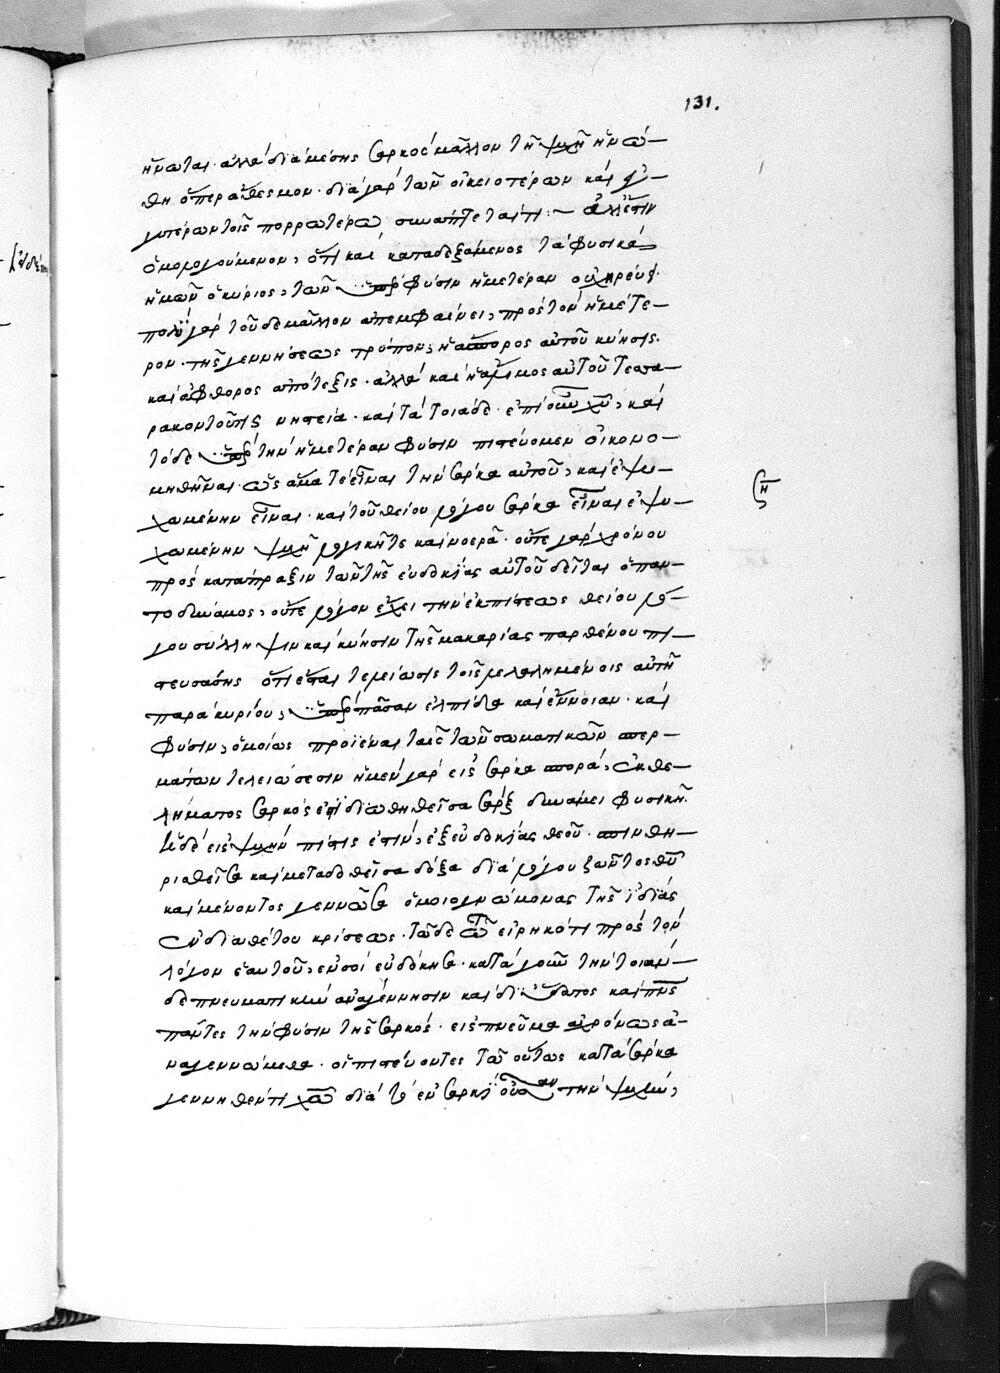 131.
ἥνωται· ἀλλὰ διὰ μέσης σαρκὸς μᾶλλον τῇ ψυχῇ ἡνώ–
θη ὅπερ ἄθεσμον· διὰ γὰρ τῶν οἰκειοτέρων καὶ ἐγ–
γυτέρων τοῖς πορρωτέρω συνάπτεταί τι :– ἀλλ' ἔστιν
ὁμολογούμενον, ὅτι καὶ καταδεξάμενος τὰ φυσικὰ
ἡμῶν ὁ κύριος, τῶν ὑπὲρ φύσιν ἡμετέραν οὐκ
πολὺ γὰρ τοῦδε μᾶλλον ἀπεμφαίνει, πρὸς τὸν ἡμέτε–
ρον τῆς γεννήσεως τρόπον, ἡ ἄσπορος αὐτοῦ κύησις.
καὶ ἄφθορος ἀπότεξις· ἀλλὰ καὶ ἡ αὐτοῦ τεσσα–
ρακοντούτις νηστεία· καὶ τὰ τοιάδε· ἐπὶ χυ, καὶ
τόδε ὑπὲρ τὴν ἡμετέραν φύσιν πιστεύομεν οἰκονο–
μηθῆναι· ὡς ἅμα τε εἶναι τὴν σάρκα αὐτοῦ, καὶ ἐψυ–
χωμένην εἶναι· καὶ τοῦ θείου λόγου σάρκα εἶναι ἐψυ–
χωμένην ψυχῇ λογικῇ τε καὶ νοερᾷ· οὔτε γὰρ χρόνου
πρὸς κατάπραξιν τῶν τῆς εὐδοκίας αὐτοῦ δεῖται ὁ παν–
τοδύναμος, οὔτε λόγον ἔχει τὴν ἐκ πίστεως θείου λό–
γου σύλληψιν καὶ κύησιν τῆς μακαρίας παρθένου πι–
στευσάσης ὅτι ἔσται τελείωσις τοῖς λελαλημένοις αὐτῇ
παρὰ κυρίου, ὑπὲρ πᾶσαν ἐλπίδα καὶ ἔννοιαν· καὶ
φύσιν, ὁμοίως προϊέναι ταῖς τῶν σωματικῶν σπερ–
μάτων τελειώσεσιν ἡ μὲν γὰρ εἰς σάρκα σπορά, ἐκ θε–
λήματος σαρκός ἐστι διωθηθεῖσα σὰρξ δυνάμει φυσικῇ.
ἡ δὲ εἰς ψυχὴν πίστις ἐστὶν, ἐξ εὐδοκίας θεοῦ·
ριαθεῖσα καὶ μεταδοθεῖσα δόξα διὰ λόγου ζῶντος θυ
καὶ μένοντος γεννῶσα ὁμοιογνώμονας τῆς ἰδίας
ἐνδιαθέτου κρίσεως· τῶδε τῷ εἰρηκότι πρὸς τὸν
λόγον ἑαυτοῦ, ἐν σοὶ εὐδόκησα· κατὰ γοῦν τὴν τοιάν–
δε πνευματικὴν ἀναγέννησιν καὶ δι' ὕδατος καὶ πνς
πάντες τὴν φύσιν τῆς σαρκός· εἰς πνεῦμα ἀχρόνως ἀ–
ναγεννώμεθα· οἱ πιστεύοντες τῷ οὕτως κατὰ σάρκα
γεννηθέντι χω διὰ τὸ ἐν σαρκὶ οὖσαν τὴν ψυχὴν,